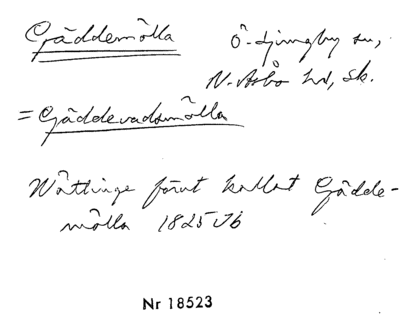 Gäddemölla Ö. Ljungby sn,
N. Åsbo hd, Sk.
= Gäddevadsmölla
Wättinge förut kallat Gädde-
mölla 1825 Jb
Nr 18523